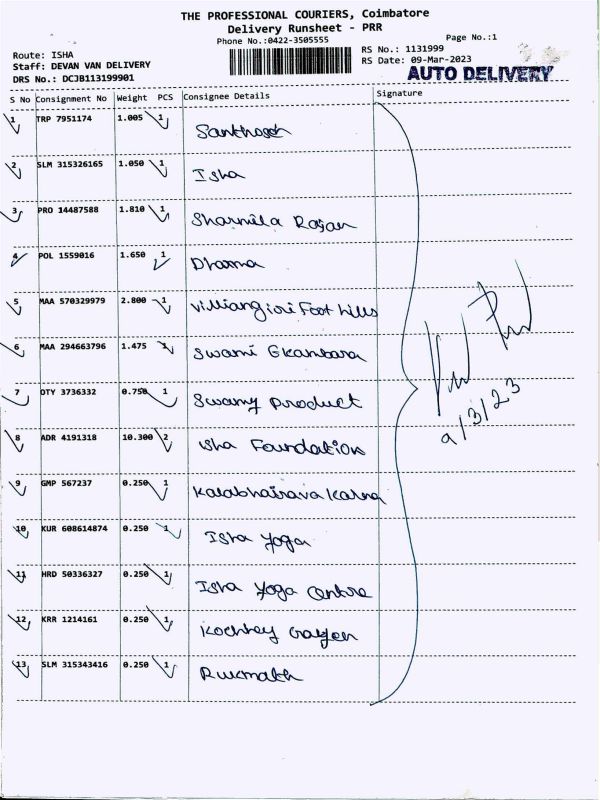 THE PROFESSIONAL COURIERS, Coimbatore
Delivery Runsheet - PRR
Phone No.:0422-3505555
Page No.:1
Route: ISHA
RS No.: 1131999
Staff: DEVAN VAN DELIVERY
RS Date: 09-Mar-2023
DRS No.: DCJB113199901
AUTO DELIVERY
S No Consignment No Weight PCS Consignee Details Signature
1 TRP 7951174 1.005 1 Santhosh
2 SLM 315326165 1.050 1 Isha
3 PRO 14487588 1.810 1 Sharmila Rajan
4 POL 1559016 1.650 1 Dharma
5 MAA 570329979 2.800 1 Villiangiri Foot hills
6 MAA 294663796 1.475 1 Swami
7 OTY 3736332 0.750 1 Swamy Product
8 ADR 4191318 10.300 2 isha Foundation
9 GMP 567237 0.250 1 Kalabhairava Karma
10 KUR 608614874 0.250 1 Isha Yoga
11 HRD 50336327 0.250 1 Isha Yoga Centre
12 KRR 1214161 0.250 1
13 SLM 315343416 0.250 1
9/3/23